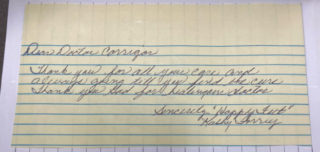 Dear Doctor Corrigan
Thank you for all your care and
always going till you find the cure
Thank you God for Doctor
Sincerely "Happy Feet"
"Kathy"